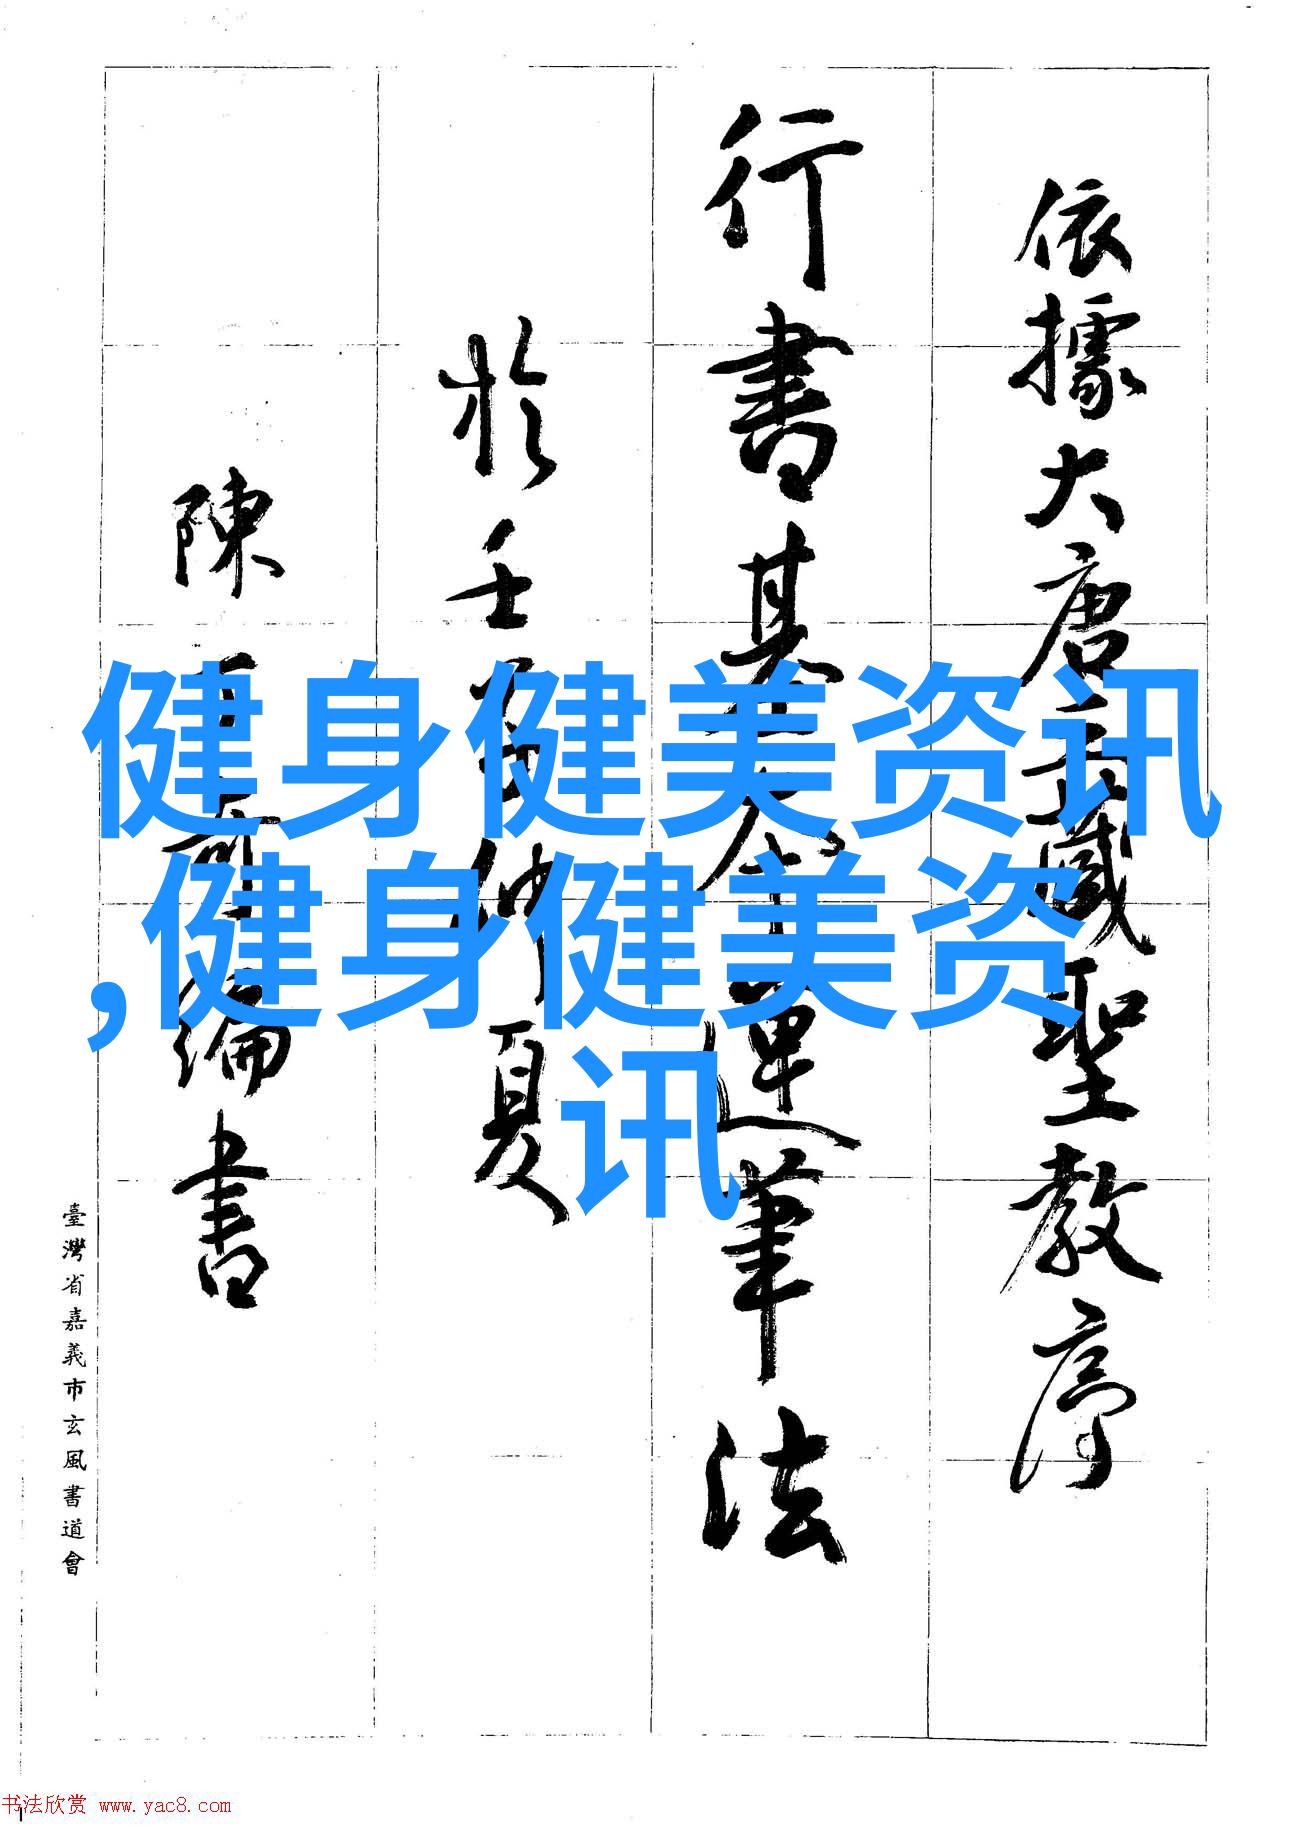 依據大唐三藏聖教序
行書基本單運筆法
於壬申仲夏
陳
編書
臺灣省嘉義市玄風書道會
健身健美资讯
,健身健美资
讯
书法欣赏 www.yac8.com